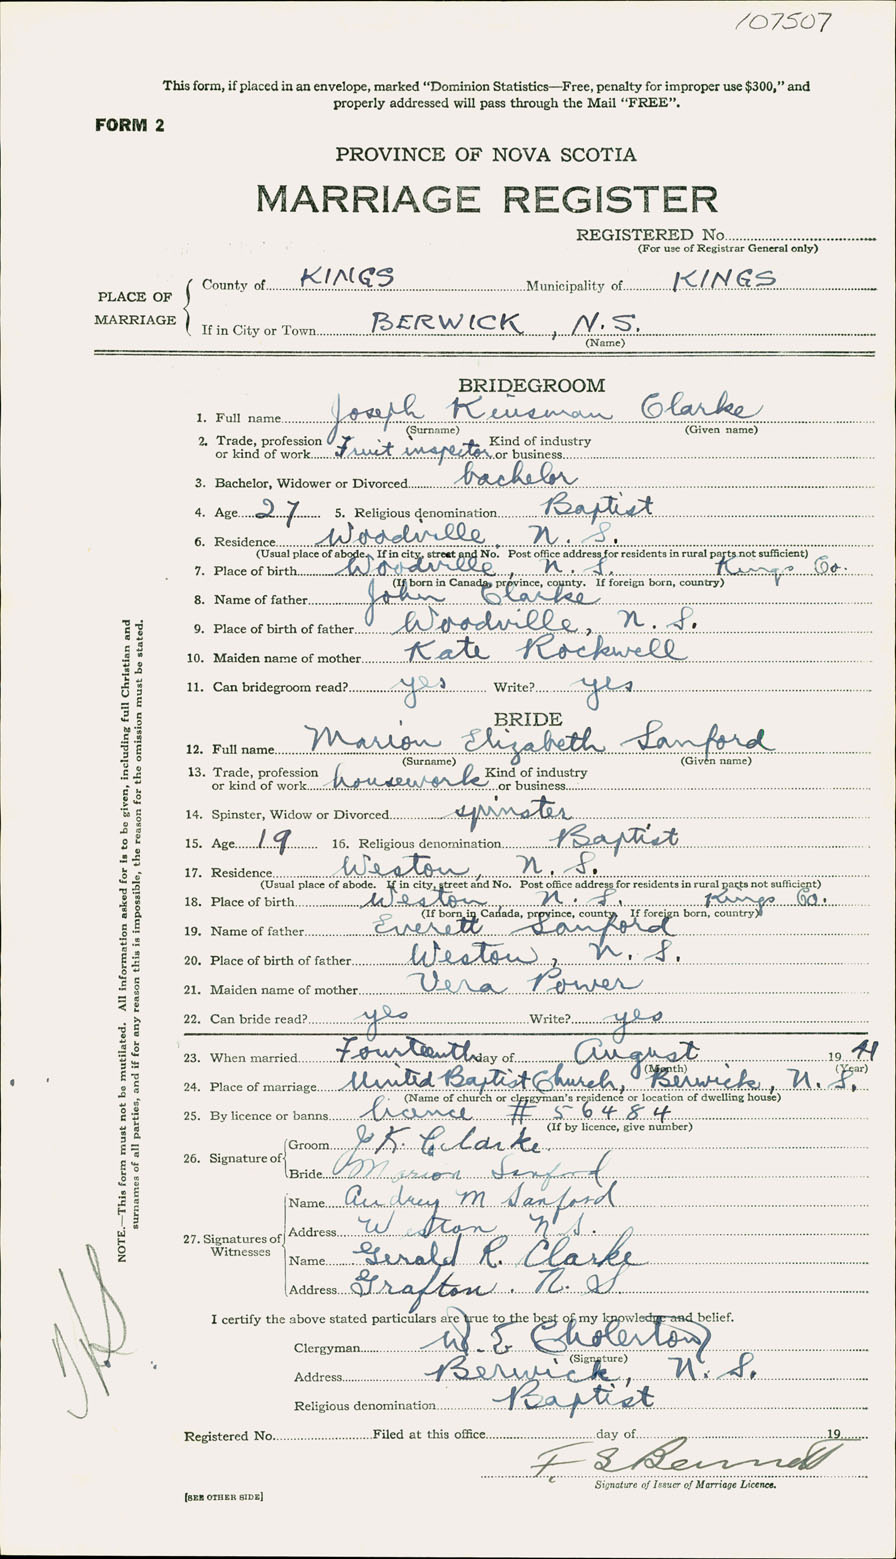 107507
This form, if placed in an envelope, marked “Dominion Statistics—Free, penalty for improper use $300,” and
properly addressed will pass through the Mail “FREE”.
FORM 2
PROVINCE OF NOVA SCOTIA
MARRIAGE REGISTER
REGISTERED No.
(For use of Registrar General only)
PLACE OF MARRIAGE
County of KINGS Municipality of KINGS
If in City or Town BERWICK, N.S.
(Name)
BRIDEGROOM
1. Full name Joseph Kinsman Clarke
(Surname) (Given name)
2. Trade, profession or kind of work Fruit inspector Kind of industry or business
3. Bachelor, Widower or Divorced bachelor
4. Age 27 5. Religious denomination Baptist
6. Residence Woodville, N. S.
(Usual place of abode. If in city, street and No. Post office address for residents in rural parts not sufficient)
7. Place of birth Woodville, N. S. Kings Co.
(If born in Canada, province, county. If foreign born, country)
8. Name of father John Clarke
9. Place of birth of father Woodville, N. S.
10. Maiden name of mother Kate Rockwell
11. Can bridegroom read? yes Write? yes
BRIDE
12. Full name Marion Elizabeth Sanford
(Surname) (Given name)
13. Trade, profession or kind of work housework Kind of industry or business
14. Spinster, Widow or Divorced spinster
15. Age 19 16. Religious denomination Baptist
17. Residence Weston, N. S.
(Usual place of abode. If in city, street and No. Post office address for residents in rural parts not sufficient)
18. Place of birth Weston, N. S. Kings Co.
(If born in Canada, province, county. If foreign born, country)
19. Name of father Everett Sanford
20. Place of birth of father Weston, N. S.
21. Maiden name of mother Vera Power
22. Can bride read? yes Write? yes
23. When married Fourteenth day of August 19 41
(Month) (Year)
24. Place of marriage United Baptist Church, Berwick, N. S.
(Name of church or clergyman's residence or location of dwelling house)
25. By licence or banns licence # 56484
(If by licence, give number)
26. Signature of
Groom J K Clarke
Bride Marion Sanford
27. Signatures of Witnesses
Name Audrey M Sanford
Address Weston N S.
Name Gerald R. Clarke
Address Grafton. N. S
I certify the above stated particulars are true to the best of my knowledge and belief.
Clergyman W. E Cholerton
(Signature)
Address Berwick, N. S.
Religious denomination Baptist
Registered No. Filed at this office day of 19
F. S Bennett
Signature of Issuer of Marriage Licence.
[SEE OTHER SIDE]
NOTE.—This form must not be mutilated. All information asked for is to be given, including full Christian and
surnames of all parties, and if for any reason this is impossible, the reason for the omission must be stated.